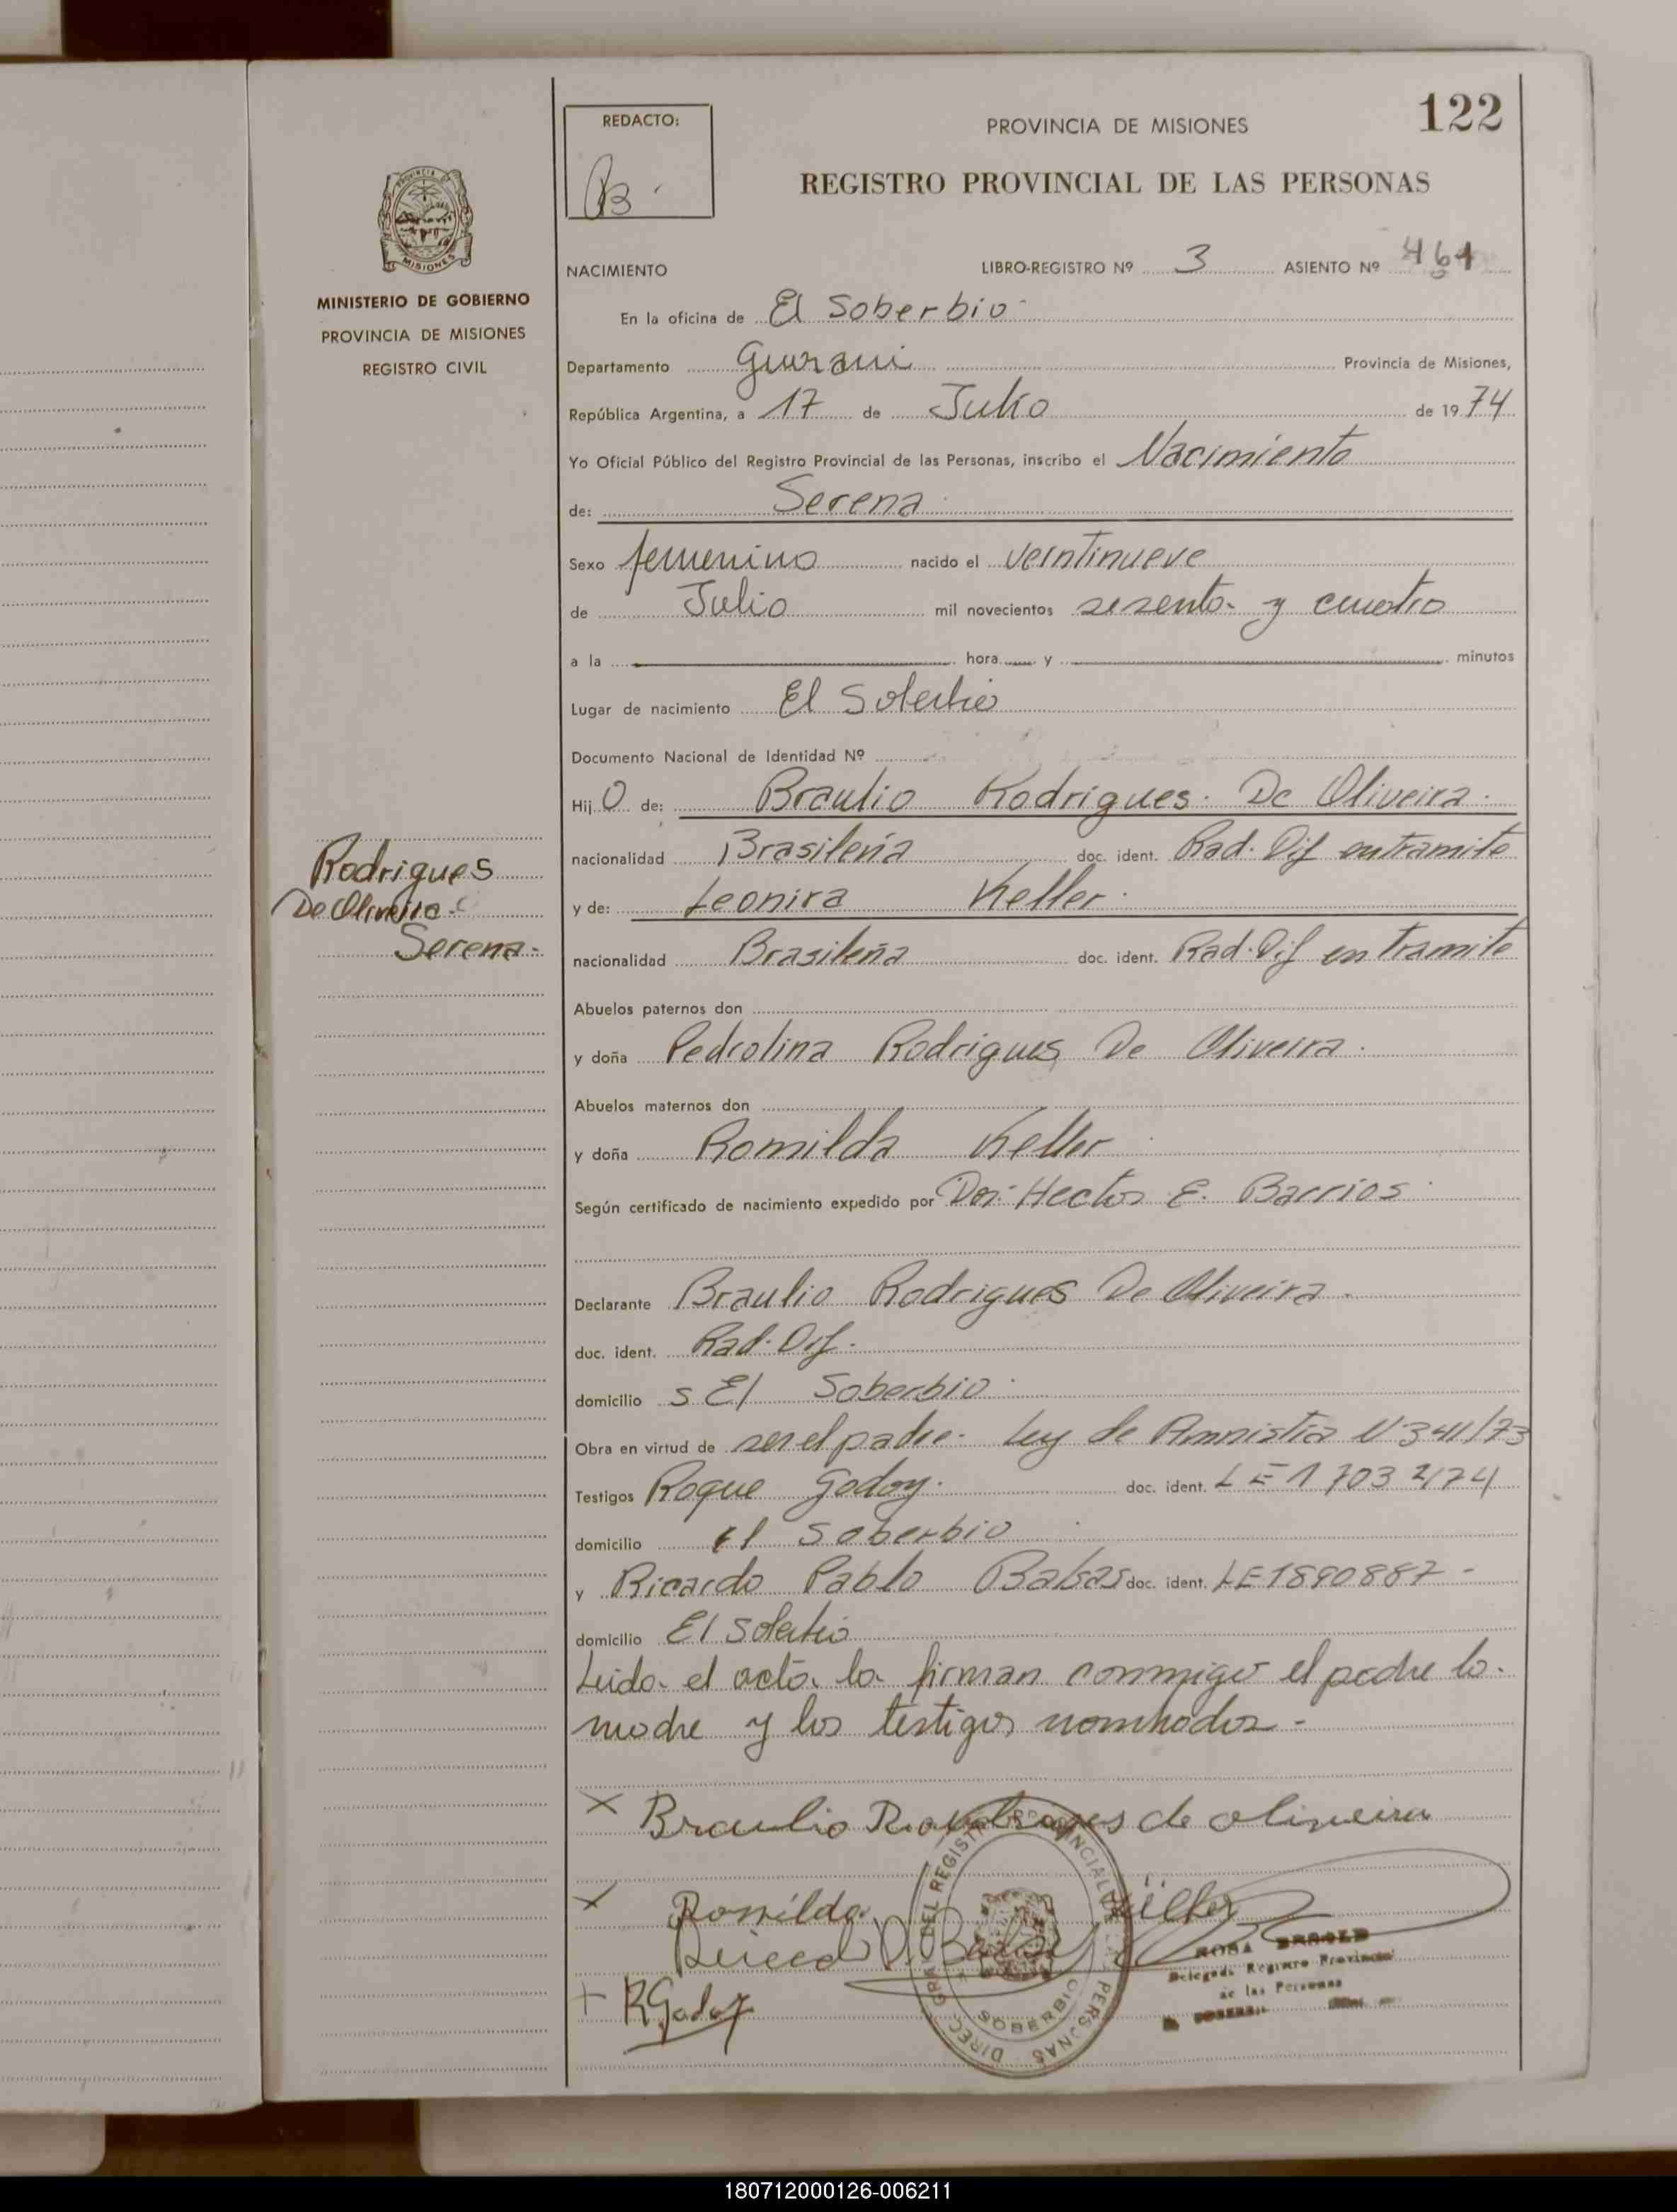 122
REDACTO:
PROVINCIA DE MISIONES
REGISTRO PROVINCIAL DE LAS PERSONAS
MISIONES
MINISTERIO DE GOBIERNO
PROVINCIA DE MISIONES
REGISTRO CIVIL
NACIMIENTO LIBRO-REGISTRO Nº 3 ASIENTO Nº 461
En la oficina de El Soberbio
Departamento Guarani Provincia de Misiones,
República Argentina, a 17 de Julio de 1974
Yo Oficial Público del Registro Provincial de las Personas, inscribo el Nacimiento
de: Serena
Sexo femenino nacido el veintinueve
de Julio mil novecientos sesenta y cuatro
a la hora y minutos
Lugar de nacimiento El Soberbio
Documento Nacional de Identidad Nº
Hij O de: Braulio Rodrigues De Oliveira
nacionalidad Brasileña doc. ident. Rad. Dif en tramite
y de: Leonira Keller
nacionalidad Brasileña doc. ident. Rad. Dif en tramite
Rodrigues
De Oliveira
Serena
Abuelos paternos don
y doña Pedrolina Rodrigues De Oliveira
Abuelos maternos don
y doña Romilda Keller
Según certificado de nacimiento expedido por Hector E. Barrios
Declarante Braulio Rodrigues De Oliveira
doc. ident. Rad. Dif.
domicilio El Soberbio
Obra en virtud de ser el padre. Ley de Amnistia N 341/73
Testigos Roque Godoy. doc. ident. LE
domicilio El Soberbio
y Ricardo Pablo Balsas doc. ident. LE 1890887
domicilio El Soberbio
Leida el acta la firman conmigo el padre la
madre y los testigos nombrados
X Braulio Rodrigues de oliveira
X Romilda
+ R Godoy
DIREC. GRAL DEL REGISTRO PROVINCIAL DE LAS PERSONAS
SOBERBIO
ROSA
Delegada Registro Provincial
de las Personas
180712000126-006211